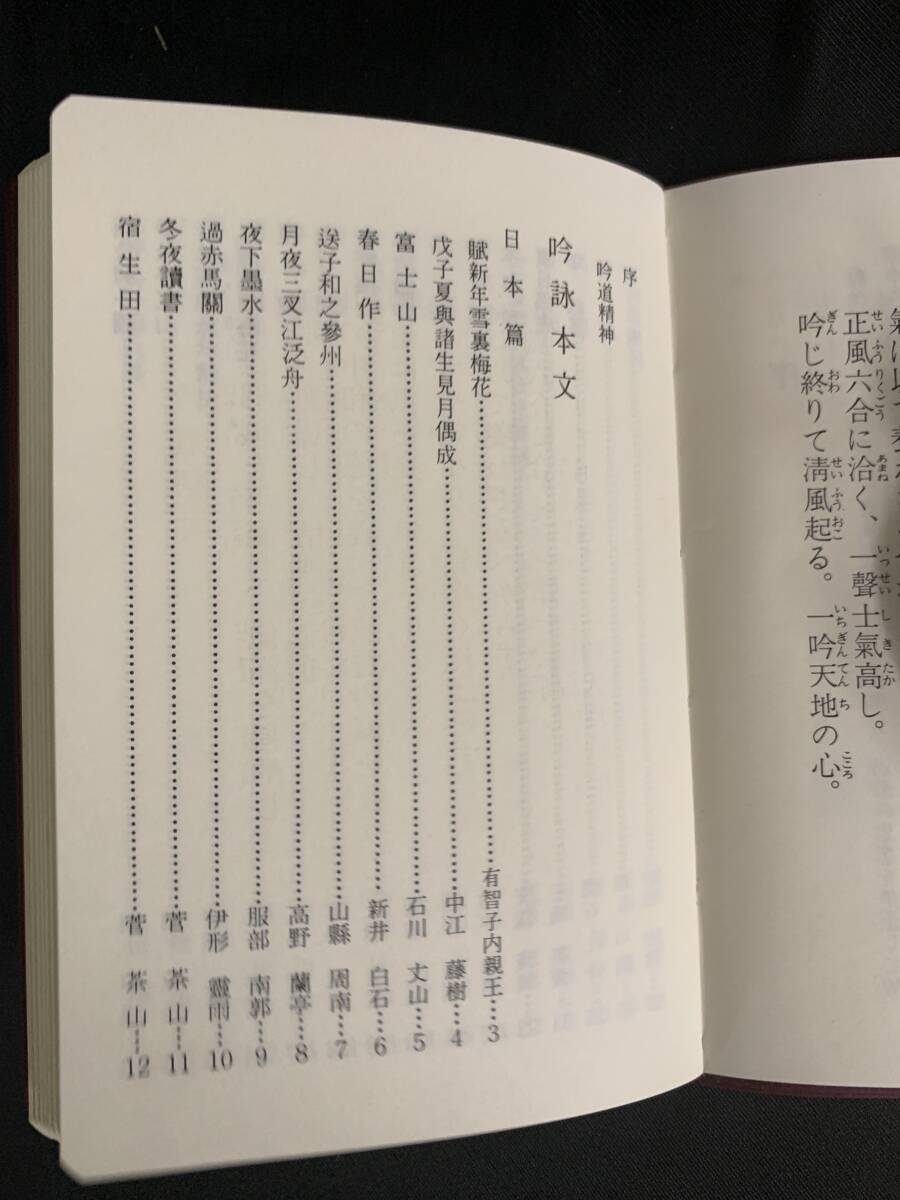 正風六合に洽く、一聲士氣高し。
吟じ終りて淸風起る。一吟天地の心。
序
吟道精神
吟詠本文
日本篇
賦新年雪裏梅花……有智子内親王…3
戊子夏與諸生見月偶成……中江 藤樹…4
富士山……石川 丈山…5
春日作……新井 白石…6
送子和之參州……山縣 周南…7
月夜三叉江泛舟……高野 蘭亭…8
夜下墨水……服部 南郭…9
過赤馬關……伊形 靈雨…10
冬夜讀書……菅 茶山…11
宿生田……菅 茶山…12